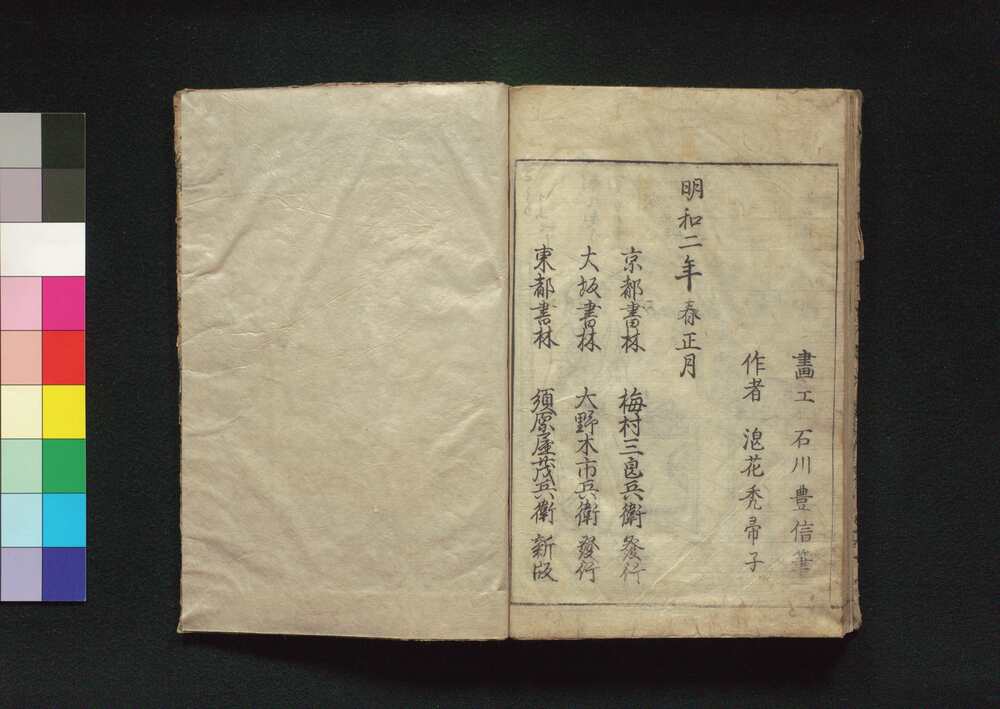 畫工 石川豊信筆
作者 浪花禿帚子
明和二年春正月
京都書林 梅村三郎兵衛 發行
大坂書林 大野木市兵衛 發行
東都書林 須原屋茂兵衛 新版